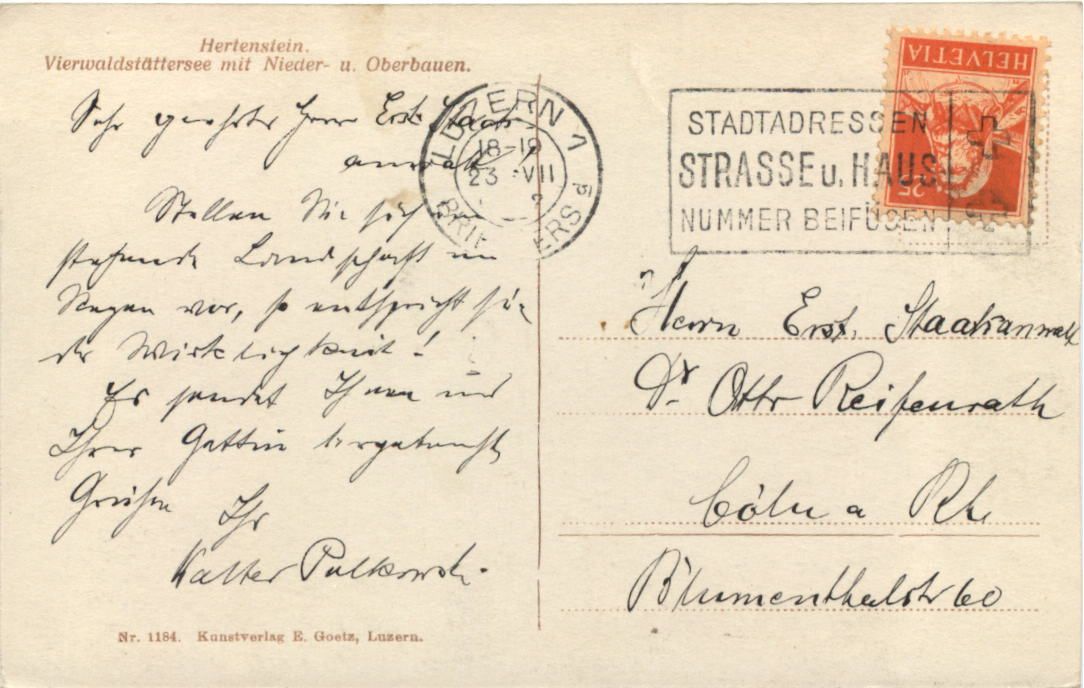 Hertenstein.
Vierwaldstättersee mit Nieder- u. Oberbauen.
Sehr geehrter Herr Erst. Staats-
anwalt!
Stellen Sie sich
stehende Landschaft im
Regen vor, so entspricht sie
der Wirklichkeit!
Es sendet Ihnen und
Ihrer Gattin ergebenst
Grüßen
Ihr
Walter
Nr. 1184. Kunstverlag E. Goetz, Luzern.
LUZERN 1
18-19
23. VII
STADTADRESSEN
STRASSE u. HAUS
NUMMER BEIFÜGEN
HELVETIA
25
Herrn Erst. Staatsanwalt
Dr. Otto Reifenrath
Cöln a Rh.
Blumenthalstr 60